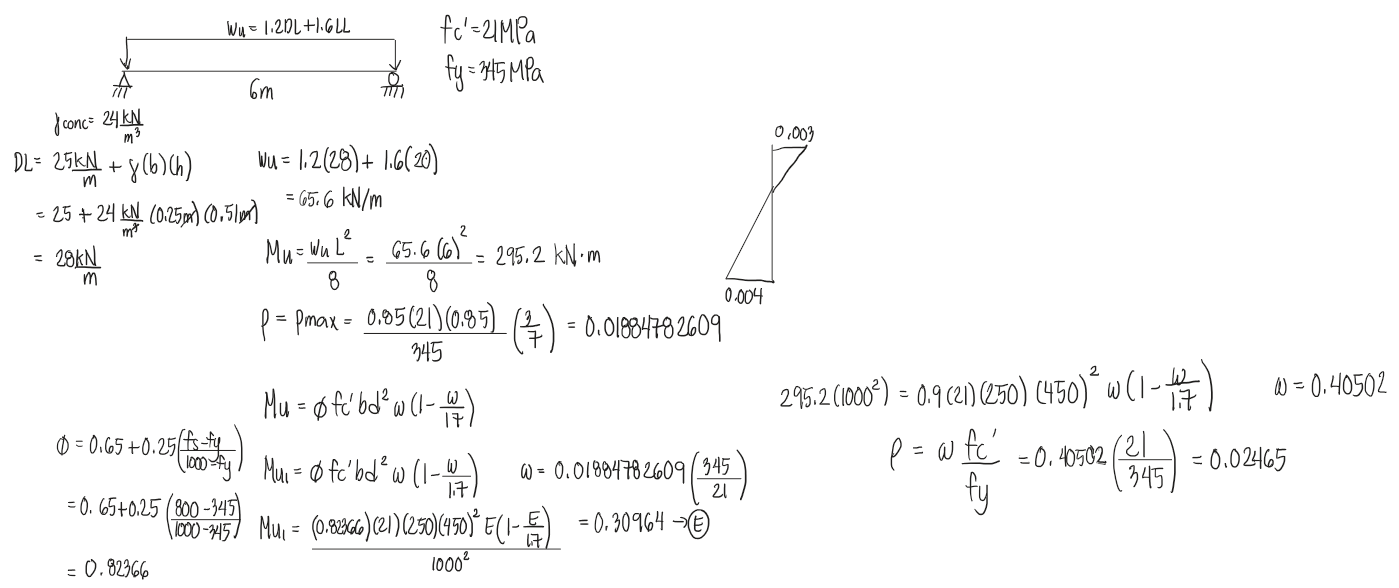 Wu = 1.2DL+1.6LL
fc' = 21MPa
fy = 345 MPa
6m
γconc = 24 kN/m³
DL = 25 kN/m + γ(b)(h)
= 25 + 24 kN/m³ (0.25m)(0.51m)
= 28 kN/m
Wu = 1.2(28) + 1.6(20)
= 65.6 kN/m
Mu = Wu L²/8 = 65.6(6)²/8 = 295.2 kN·m
0.003
0.004
ρ = ρmax = 0.85(21)(0.85)/345 (3/7) = 0.01884782609
Mu = φ fc' bd² ω (1 - ω/1.7)
φ = 0.65 + 0.25(fs-fy/1000-fy)
= 0.65+0.25 (800-345/1000-345)
= 0.82366
Mu₁ = φ fc' bd² ω (1 - ω/1.7)
ω = 0.01884782609 (345/21)
= 0.30964 → E
Mu₁ = (0.82366)(21)(250)(450)² E(1 - E/1.7)/1000²
295.2(1000²) = 0.9(21)(250)(450)² ω(1 - ω/1.7)
ω = 0.40502
ρ = ω fc'/fy = 0.40502 (21/345) = 0.02465